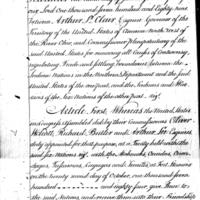 our Lord one thousand seven hundred and Eighty nine
between Arthur St. Clair Esquire Governor of the
Territory of the United States of America North West of
the River Ohio, and Commissioner Plenipotentiary of the
said United States for removing all Causes of Controversy,
regulating Trade and settling Boundaries between the
Indian Nations in the Northern Department and the said
United States of the one part, and the Sachems and War-
riors of the Six Nations of the other part,
Article First, Whereas the United States
by their Commissioners Oliver
Wolcott, Richard Butler and Arthur Lee Esquires
duly appointed for that purpose, at a Treaty held with the
said Six Nations
at Fort Stanwix
on the twenty second day of October, one thousand seven
hundred and eighty four give Peace to
the said Nations, and receive them into their Friendship